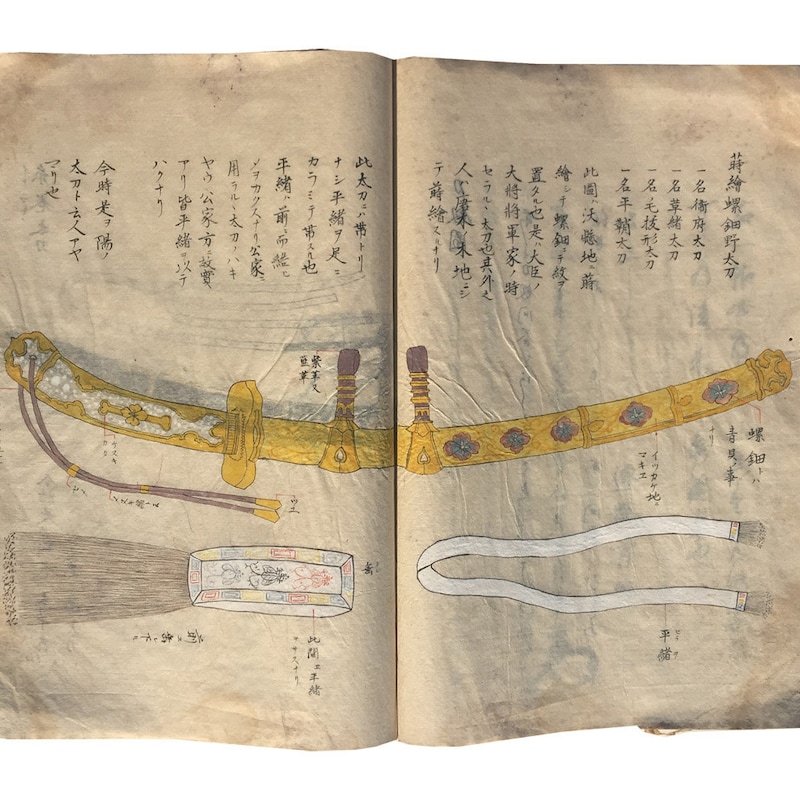 蒔繪螺鈿野太刀
一名衛府太刀
一名草緒太刀
一名毛抜形太刀
一名平鞘太刀
此圖ハ沃懸地ニ蒔
繪シテ螺鈿ニテ紋ヲ
置タル也是ハ大臣ノ
大将将軍家ノ時
セラル丶太刀也其外之
人ハ唐木ノ木地ニシ
テ蒔繪スルナリ
螺鈿トハ
青貝ノ事
ナリ
イツカケ地ニ
マキヱ
平緒
此太刀ニハ帯トリ
ナシ平緒ヲ足ニ
カラミテ帯スル也
平緒ハ前ニ而
用ラル丶太刀ノハキ
ヤウ公家方ノ故實
アリ皆平緒ヲ以テ
ハクナリ
今時是ヲ陽ノ
太刀ト云人アヤ
マリ也
紫革又
藍革
此間ニ平緒
ヲサスナリ